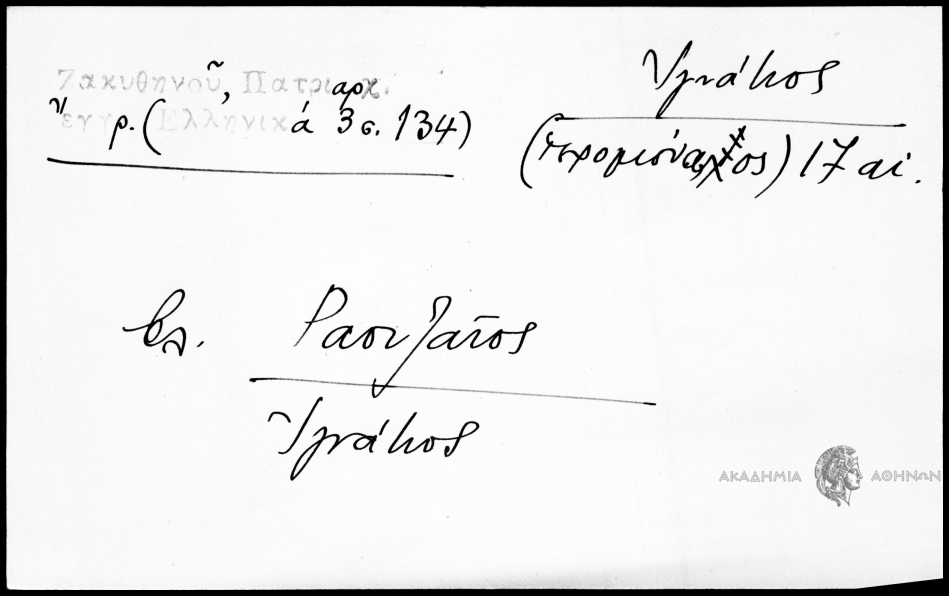 Ζακυθηνοῦ, Πατριαρχ.
ἔγγρ. (Ἑλληνικά 3 σ. 134)
Ἰγνάτιος
(ἱερομόναχος) 17 αἰ.
βλ.
Ἰγνάτιος
ΑΚΑΔΗΜΙΑ ΑΘΗΝΩΝ